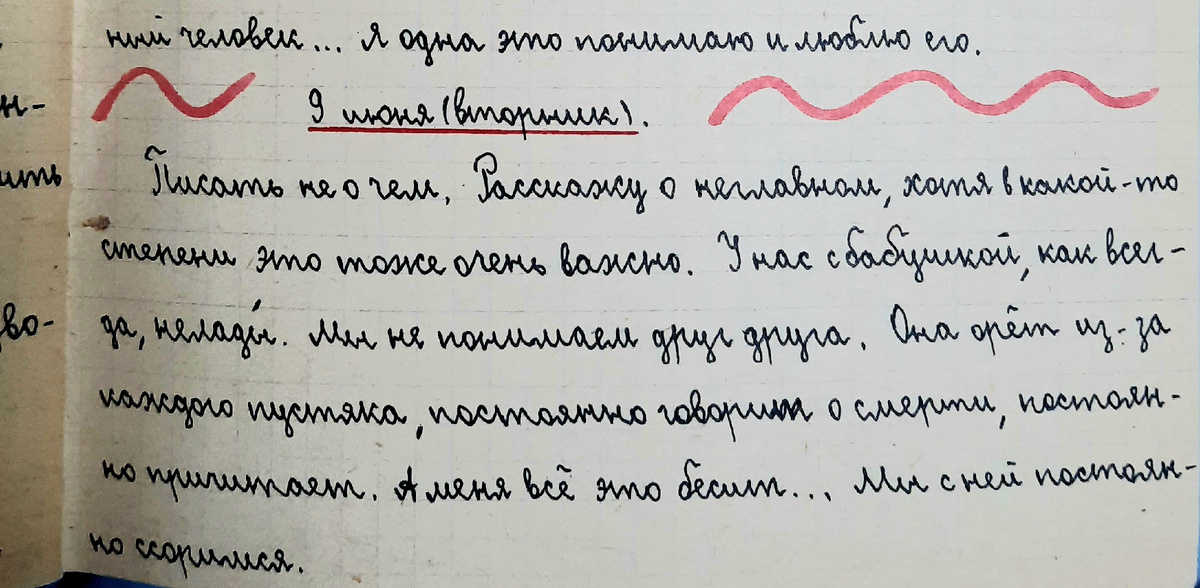 ный человек... Я одна это понимаю и люблю его.
н-
9 июня (вторник).
ить
Писать не о чем. Расскажу о неглавном, хотя в какой-то
степени это тоже очень важно. У нас с бабушкой, как всег-
во-
да, нелады́. Мы не понимаем друг друга. Она орёт из-за
каждого пустяка, постоянно говорит о смерти, постоян-
но причитает. А меня всё это бесит... Мы с ней постоян-
но ссоримся.